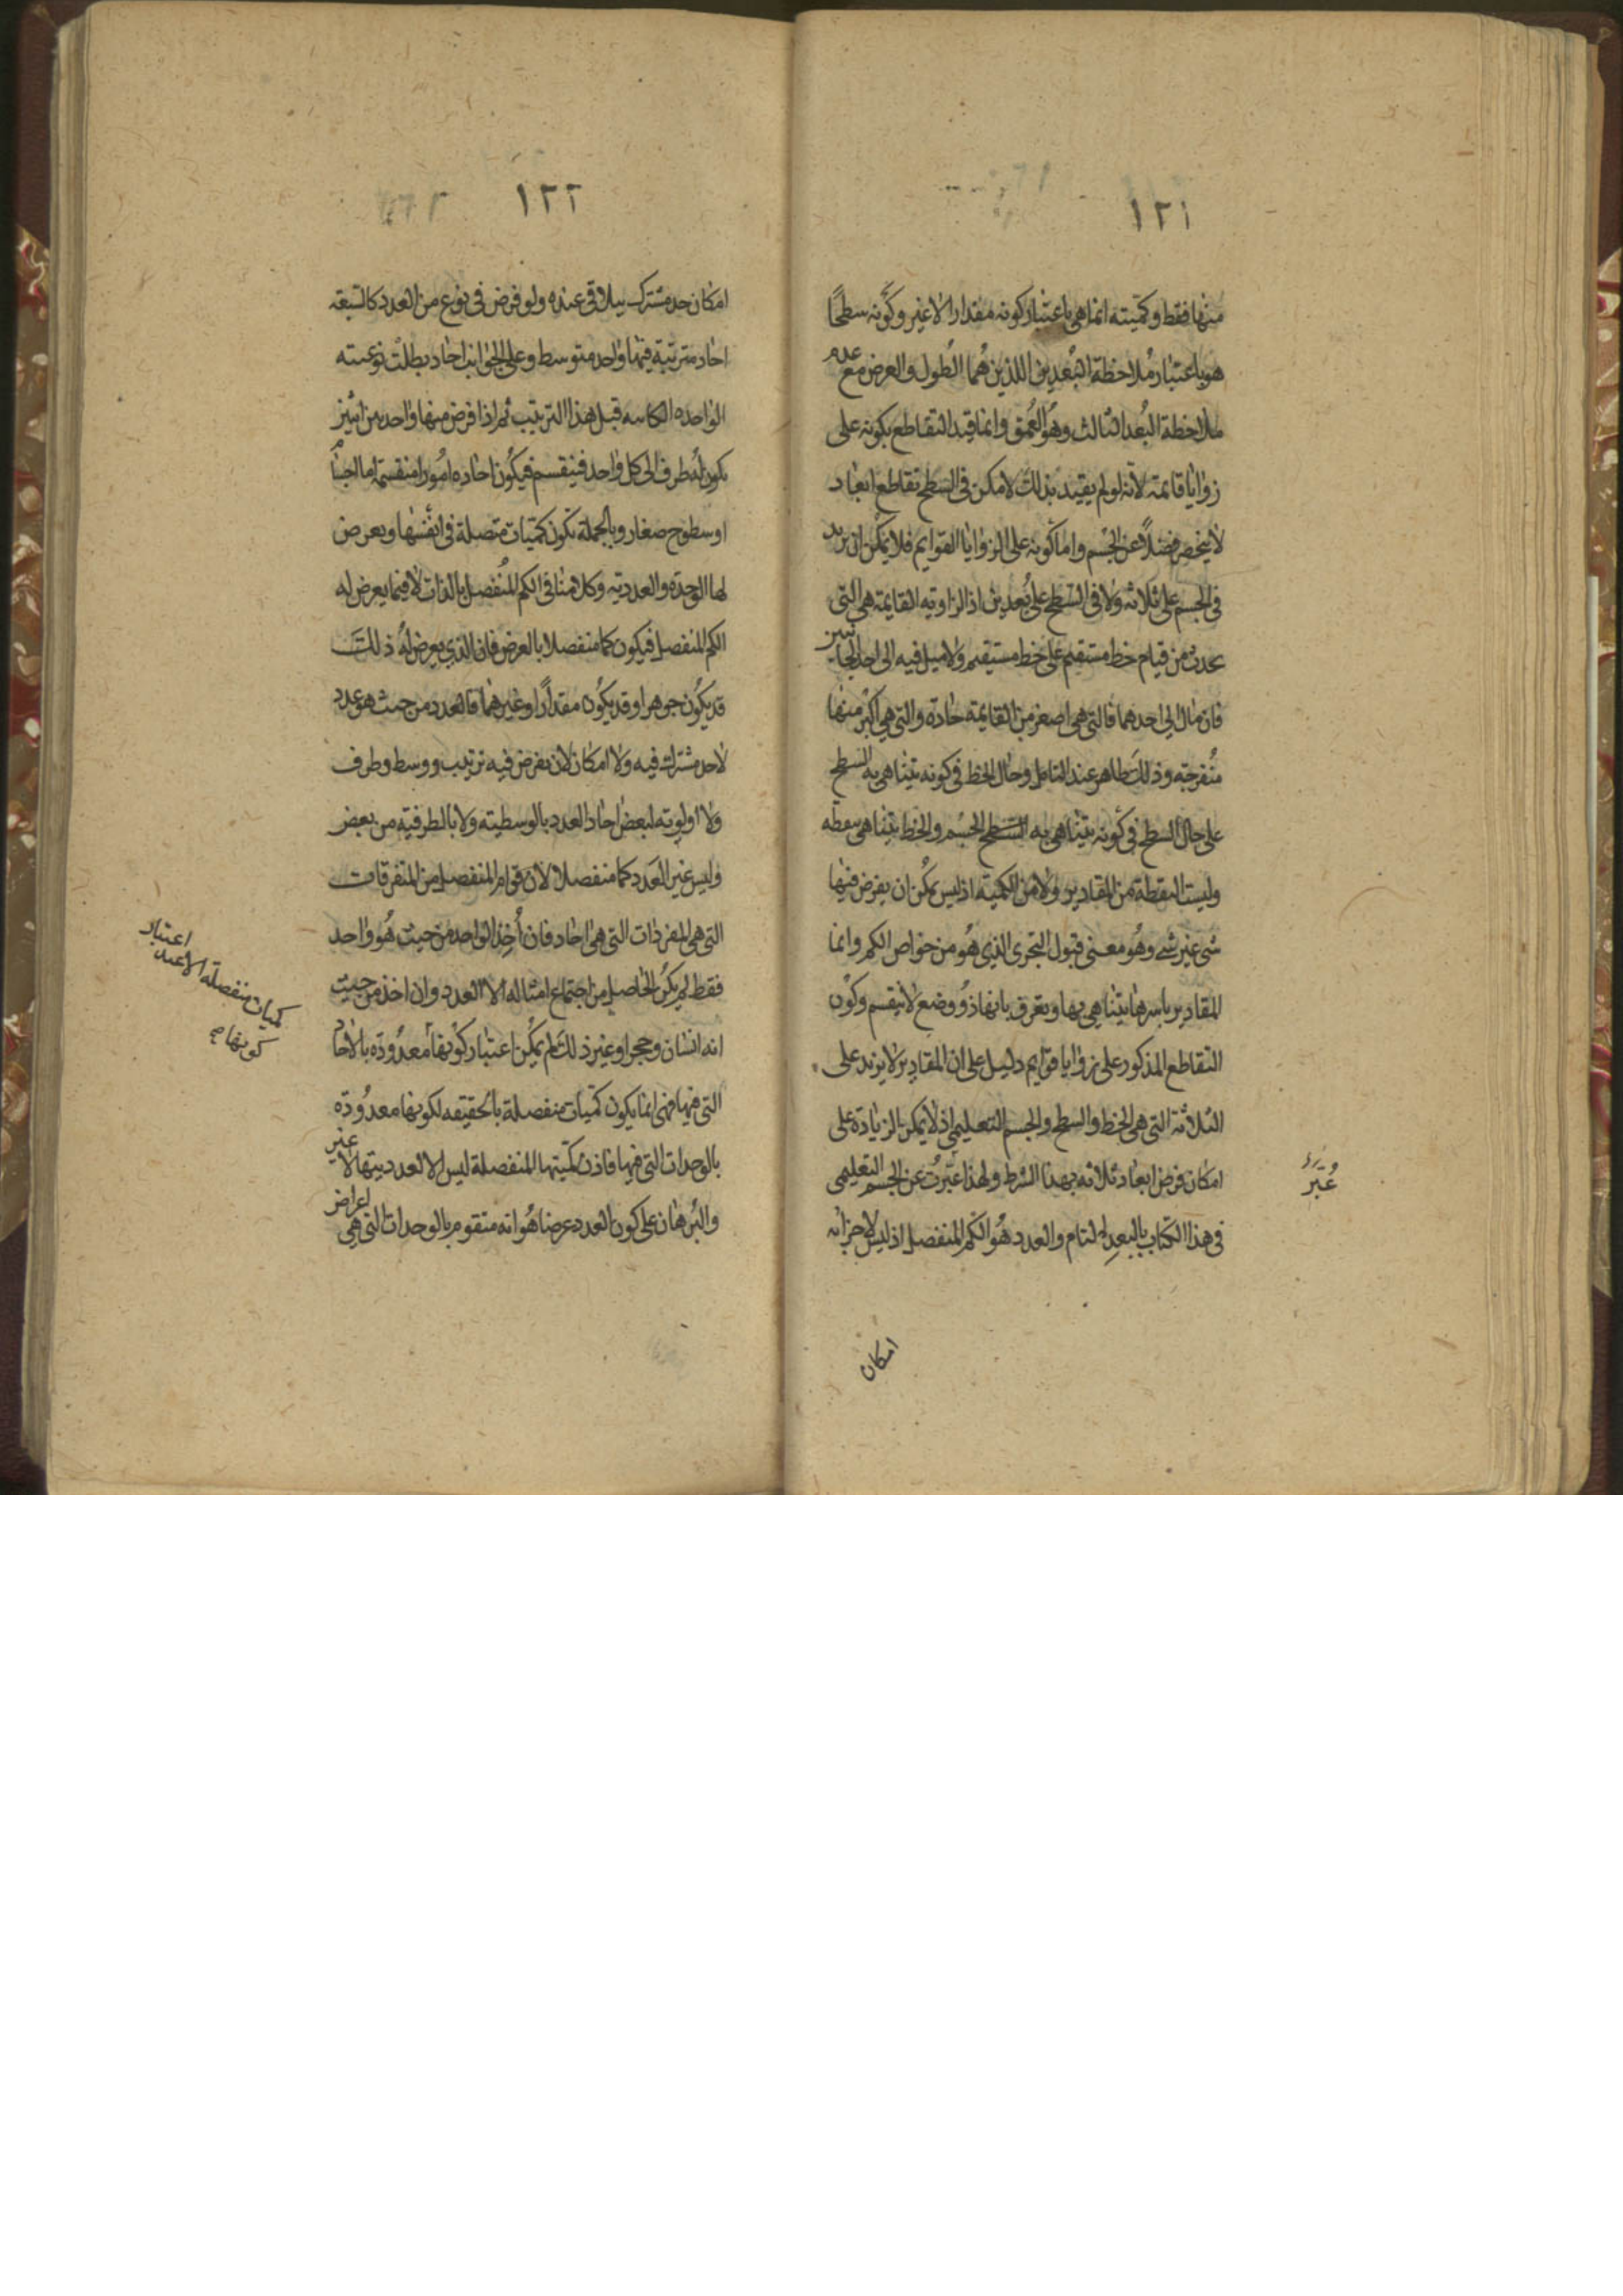 ١٢١
منها فقط وكميته انما هي باعتبار كونه مقدارا لا غير وكونه سطحًا
هو باعتبار مُلاحظة البُعدين اللذين هُما الطُول والعرض مع عدم
ملاحظة البُعد الثالث وهُو العُمق وانما قيد التقاطع بكونه على
زوايا قايمة لانه لو لم يقيد بذلك لامكن في السطح تقاطع ابعاد
لا ينحصر فضلاً عن الجسم واما كونه على الزوايا القوايم فلا يمكن ان يزيد
في الجسم على ثلاثة ولا في السطح على بُعدين اذ الزاويه القايمة هي التي
تحدث من قيام خط مستقيم على خط مستيقم ولا ميل فيه الى احد الجانبين
فان مال الى احدهما فالتي هي اصغر من القايمة حادة والتي هي اكبر منها
مُنفرجة وذلك ظاهر عند التامل وحال الخط في كونه يتناهى به السطح
على حال السطح في كونه يتناهى به الجسم والخط يتناهى بنقطه
وليست النقطة من المقادير ولا من الكمية اذ ليس يمكن ان يفرض فيها
شى غير شے وهُو معنى قبول التجزى الذي هُو من خواص الكم وانما
المقادير باسرها يتناهى بها وتعرف بانها ذو وضع لا ينقسم وكون
التقاطع المذكور على زوايا قوايم دليل على ان المقادير لا يزيد على
الثلاثة التي هي الخط والسطح والجسم التعليمي اذ لا يمكن الزيادة على
امكان فرض ابعاد ثلاثة بهذا الشرط ولهذا عُبِّرت عن الجسم التعليمى
في هذا الكتاب بالبعد التام والعدد هُو الكم المنفصل اذ ليس لاجزائه
عُبّر
امكان
١٢٢
امكان حد مشترك يتلاقى عنده ولو فرض في نوع من العدد كالسبعة
احاد مترتبة فيها واحد متوسط وعلى الجوانب احاد بطلت نوعيته
الواحده الكاينه قبل هذا الترتيب ثم اذا فرض منها واحد بين اثنين
يكون له طرف الى كل واحد فينقسم فيكون احاده امُورا منقسمة اما اجسام
او سطوح صغار وبالجملة تكون كميات متصلة في انفسها ويعرض
لها الوحدة والعددية وكلامنا في الكم المُنفصل بالذات لا فيما يعرض له
الكم المنفصل فيكون كما منفصلا بالعرض فان الذي يعرض لهُ ذلك
قد يكُون جوهرا وقد يكُون مقدارًا وغيرهما فالعدد من حيث هو عدد
لا حد مشترك فيه ولا امكان لان يفرض فيه ترتيب ووسط وطرف
ولا اولويه لبعض احاد العدد بالوسطيته ولا بالطرفيه من بعض
وليس غير العدد كما منفصلا لان قوام المنفصل من المتفرقات
التي هي المفردات التي هي احاد فان اُخِذ الواحد من حيث هُو واحد
فقط لم يكُن الحاصل من اجتماع امثاله الا العدد وان اخذ من حيث
انه انسان وحجر او غير ذلك لم يمكن اعتبار كونها معدُودة بالاحاد
التي فيها فهى انما يكون كميات منفصلة بالحقيقه لكونها معدُودة
بالوحدات التي فيها فاذن كميتها المنفصلة ليس الا لعدديتها لا غير
والبُرهان على كون العدد عرضا هُو انه متقوم بالوحدات التي هي اعراض
اعتبار
كميات منفصلة الا عند
كونها